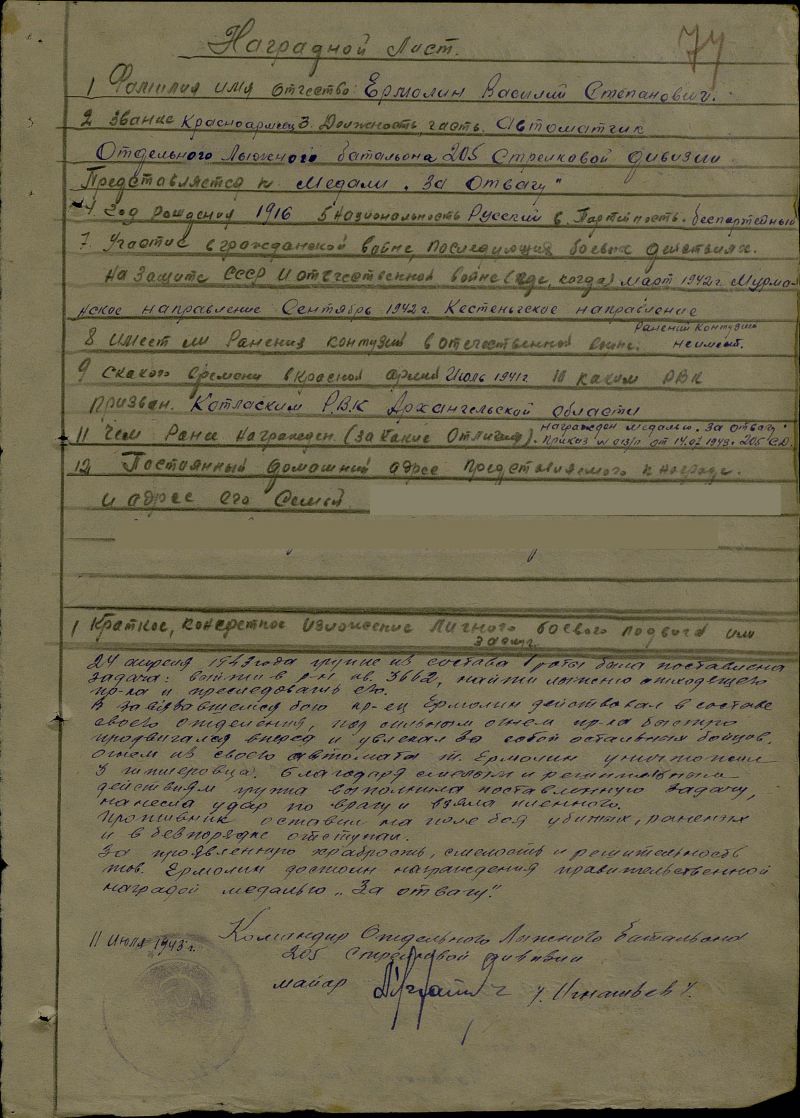 Наградной Лист.
74
1 Фамилия имя отчество: Ермолин Василий Степанович.
2 звание Красноармеец 3. Должность, часть. Автоматчик
Отдельного Лыжного батальона 205 Стрелковой дивизии
Представляется к Медали „За Отвагу"
4. Год рождения 1916 5 Национальность Русский 6. Партийность. беспартейный
7. Участие в гражданской войне, последующих боевых действиях.
на защите СССР и отечественной войне (где, когда) март 1942 г. Мурма-
нское направление Сентябрь 1942 г. Кестеньгское направление
8 имеет ли Ранения контузии в отечественной войне. Ранений контузий
неимеет.
9 скакого времени в Красной армии Июль 1941 г 10 каким РВК
призван. Котласким Р.В.К Архангельской области
11 Чем Ранее Награжден (за какие Отличия). Награжден медалью „За отвагу"
Приказ № 013/п от 14.02 1943 г. 205 СД.
12 Постоянный домашний адрес представляемого к награде.
и адрес его Семьи
1 Краткое, конкретное изложение личного боевого подвига или
заслуг.
24 апреля 1943 года группе из состава роты была поставлена
задача: выйти в р-н кв. 3662, найти лыжню отходящего
пр-ка и преследовать его.
В завязавшемся бою кр-ец Ермолин действовал в составе
своего отделения, под сильным огнем пр-ка быстро
продвигался вперед и увлекал за собой остальных бойцов.
огнем из своего автомата т. Ермолин уничтожил
3 гитлеровца. Благодаря смелым и решительным
действиям группа выполнила поставленную задачу,
нанесла удар по врагу и взяла пленного.
Противник оставил на поле боя убитых, раненых
и в безпорядке отступал.
За проявленную храбрость, смелость и решительность
тов. Ермолин достоин награждения правительственной
наградой медалью „За отвагу".
11 Июля 1943 г. Командир Отдельного Лыжного батальона
205 Стрелковой дивизии
майор /Игнатьев/.